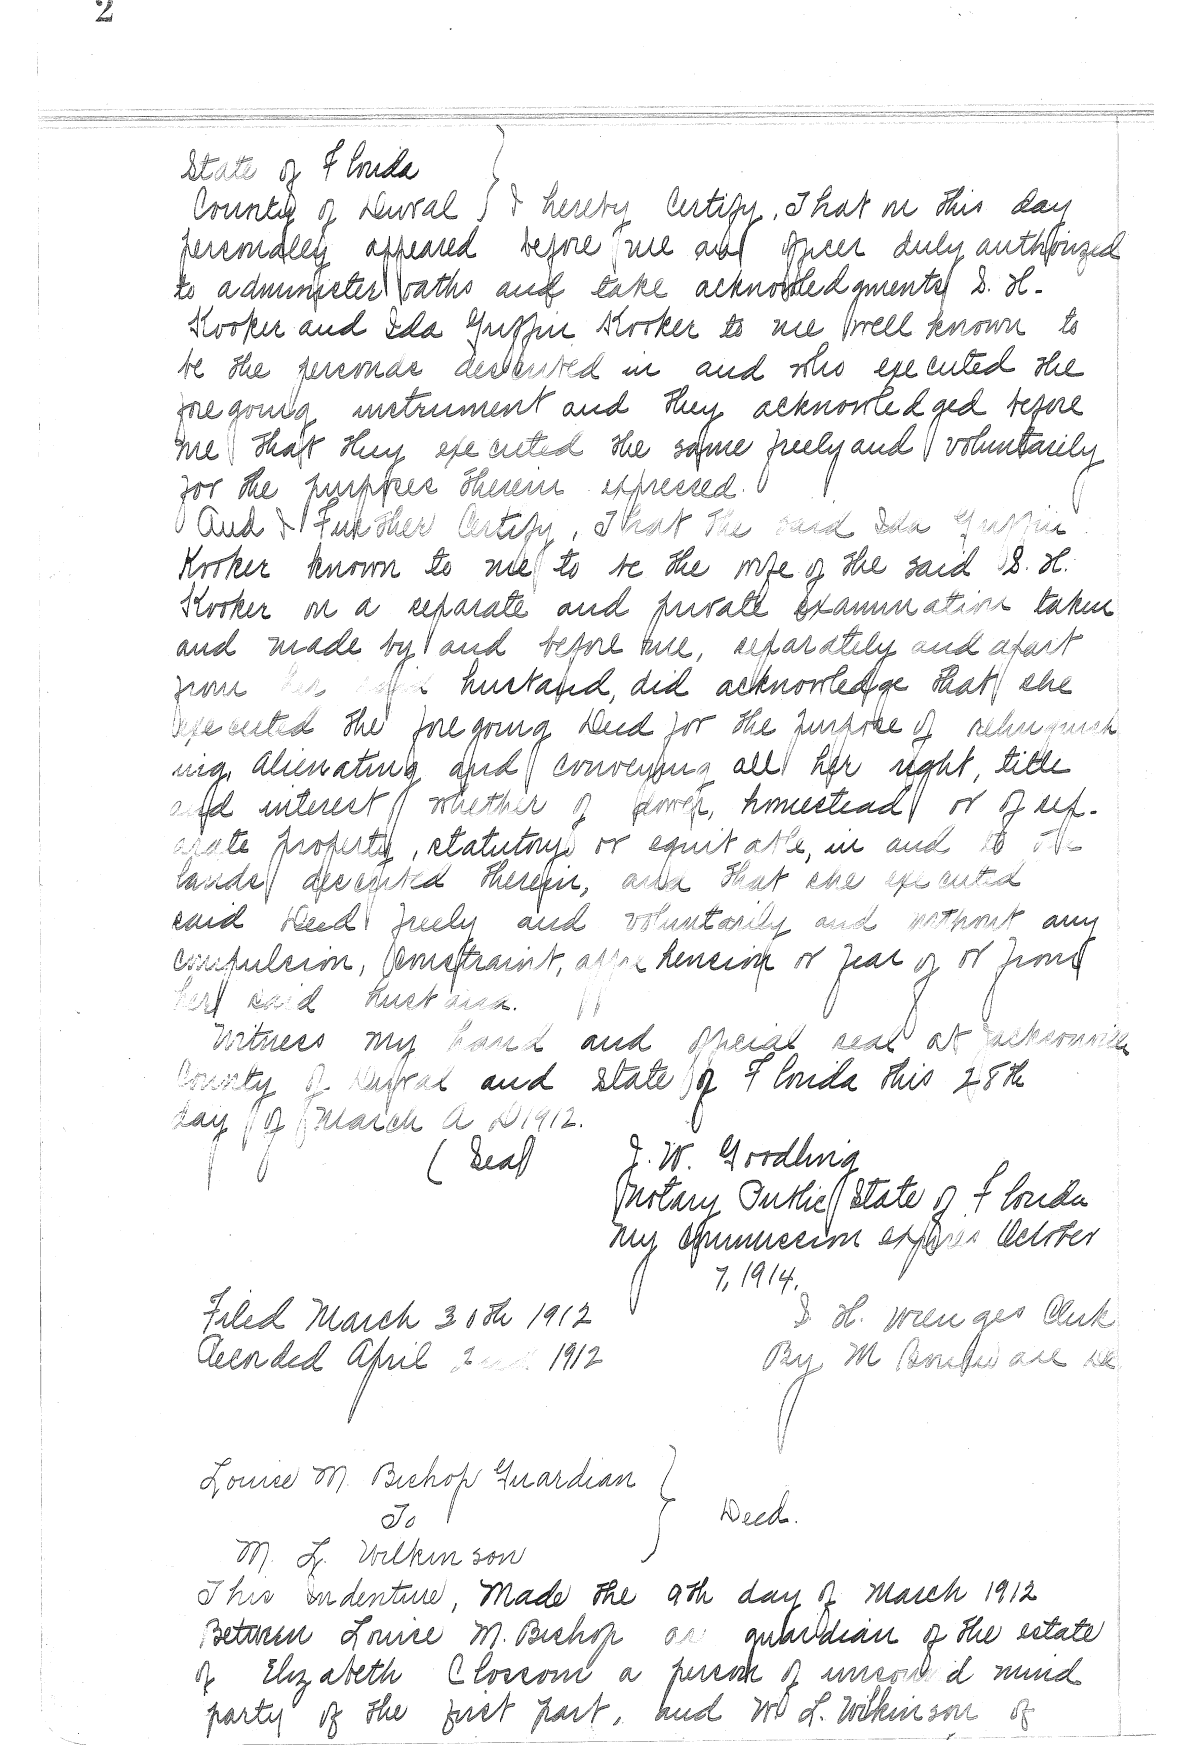 2
State of Florida
County of Duval } I hereby Certify, That on this day
personally appeared before me an officer duly authorized
to administer oaths and take acknowledgments S. H.
Kooker and Ida Griffin Kooker to me well known to
be the persons described in and who executed the
foregoing instrument and they acknowledged before
me that they executed the same freely and voluntarily
for the purposes therein expressed.
And I Further Certify, That the said Ida Griffin
Kooker known to me to be the wife of the said S. H.
Kooker on a separate and private examination taken
and made by and before me, separately and apart
from her said husband, did acknowledge that she
executed the foregoing Deed for the purpose of relinquish
ing, alienating and conveying all her right, title
and interest whether of dower, homestead or of sep-
arate property, statutory or equitable, in and to the
lands described therein, and that she executed
said Deed freely and voluntarily and without any
compulsion, constraint, apprehension or fear of or from
her said husband.
Witness my hand and official seal at Jacksonville
County of Duval and State of Florida this 28th
day of March A D 1912.
(Seal) J. W. Goodling
Notary Public State of Florida
My commission expires October
7, 1914.
Filed March 30th 1912
Recorded April 2nd 1912
H. Clerk
By M
Louise M. Bishop Guardian
To } Deed.
M. L. Wilkinson
This indenture, Made the 9th day of March 1912
Between Louise M. Bishop as guardian of the estate
of Elizabeth Clossom a person of unsound mind
party of the first part, and M L. Wilkinson of